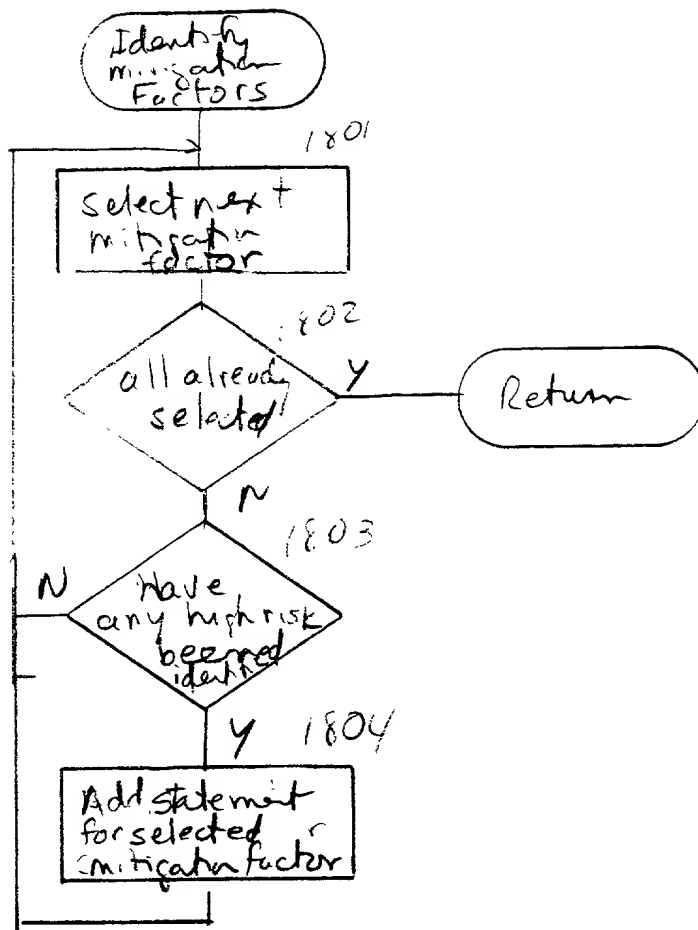 Identify
mitigation
Factors
1801
Select next
mitigation
factor
1802
all already
selected
Y
Return
N
1803
N
Have
any high risk
been
identified
Y
1804
Add statement
for selected
mitigation factor